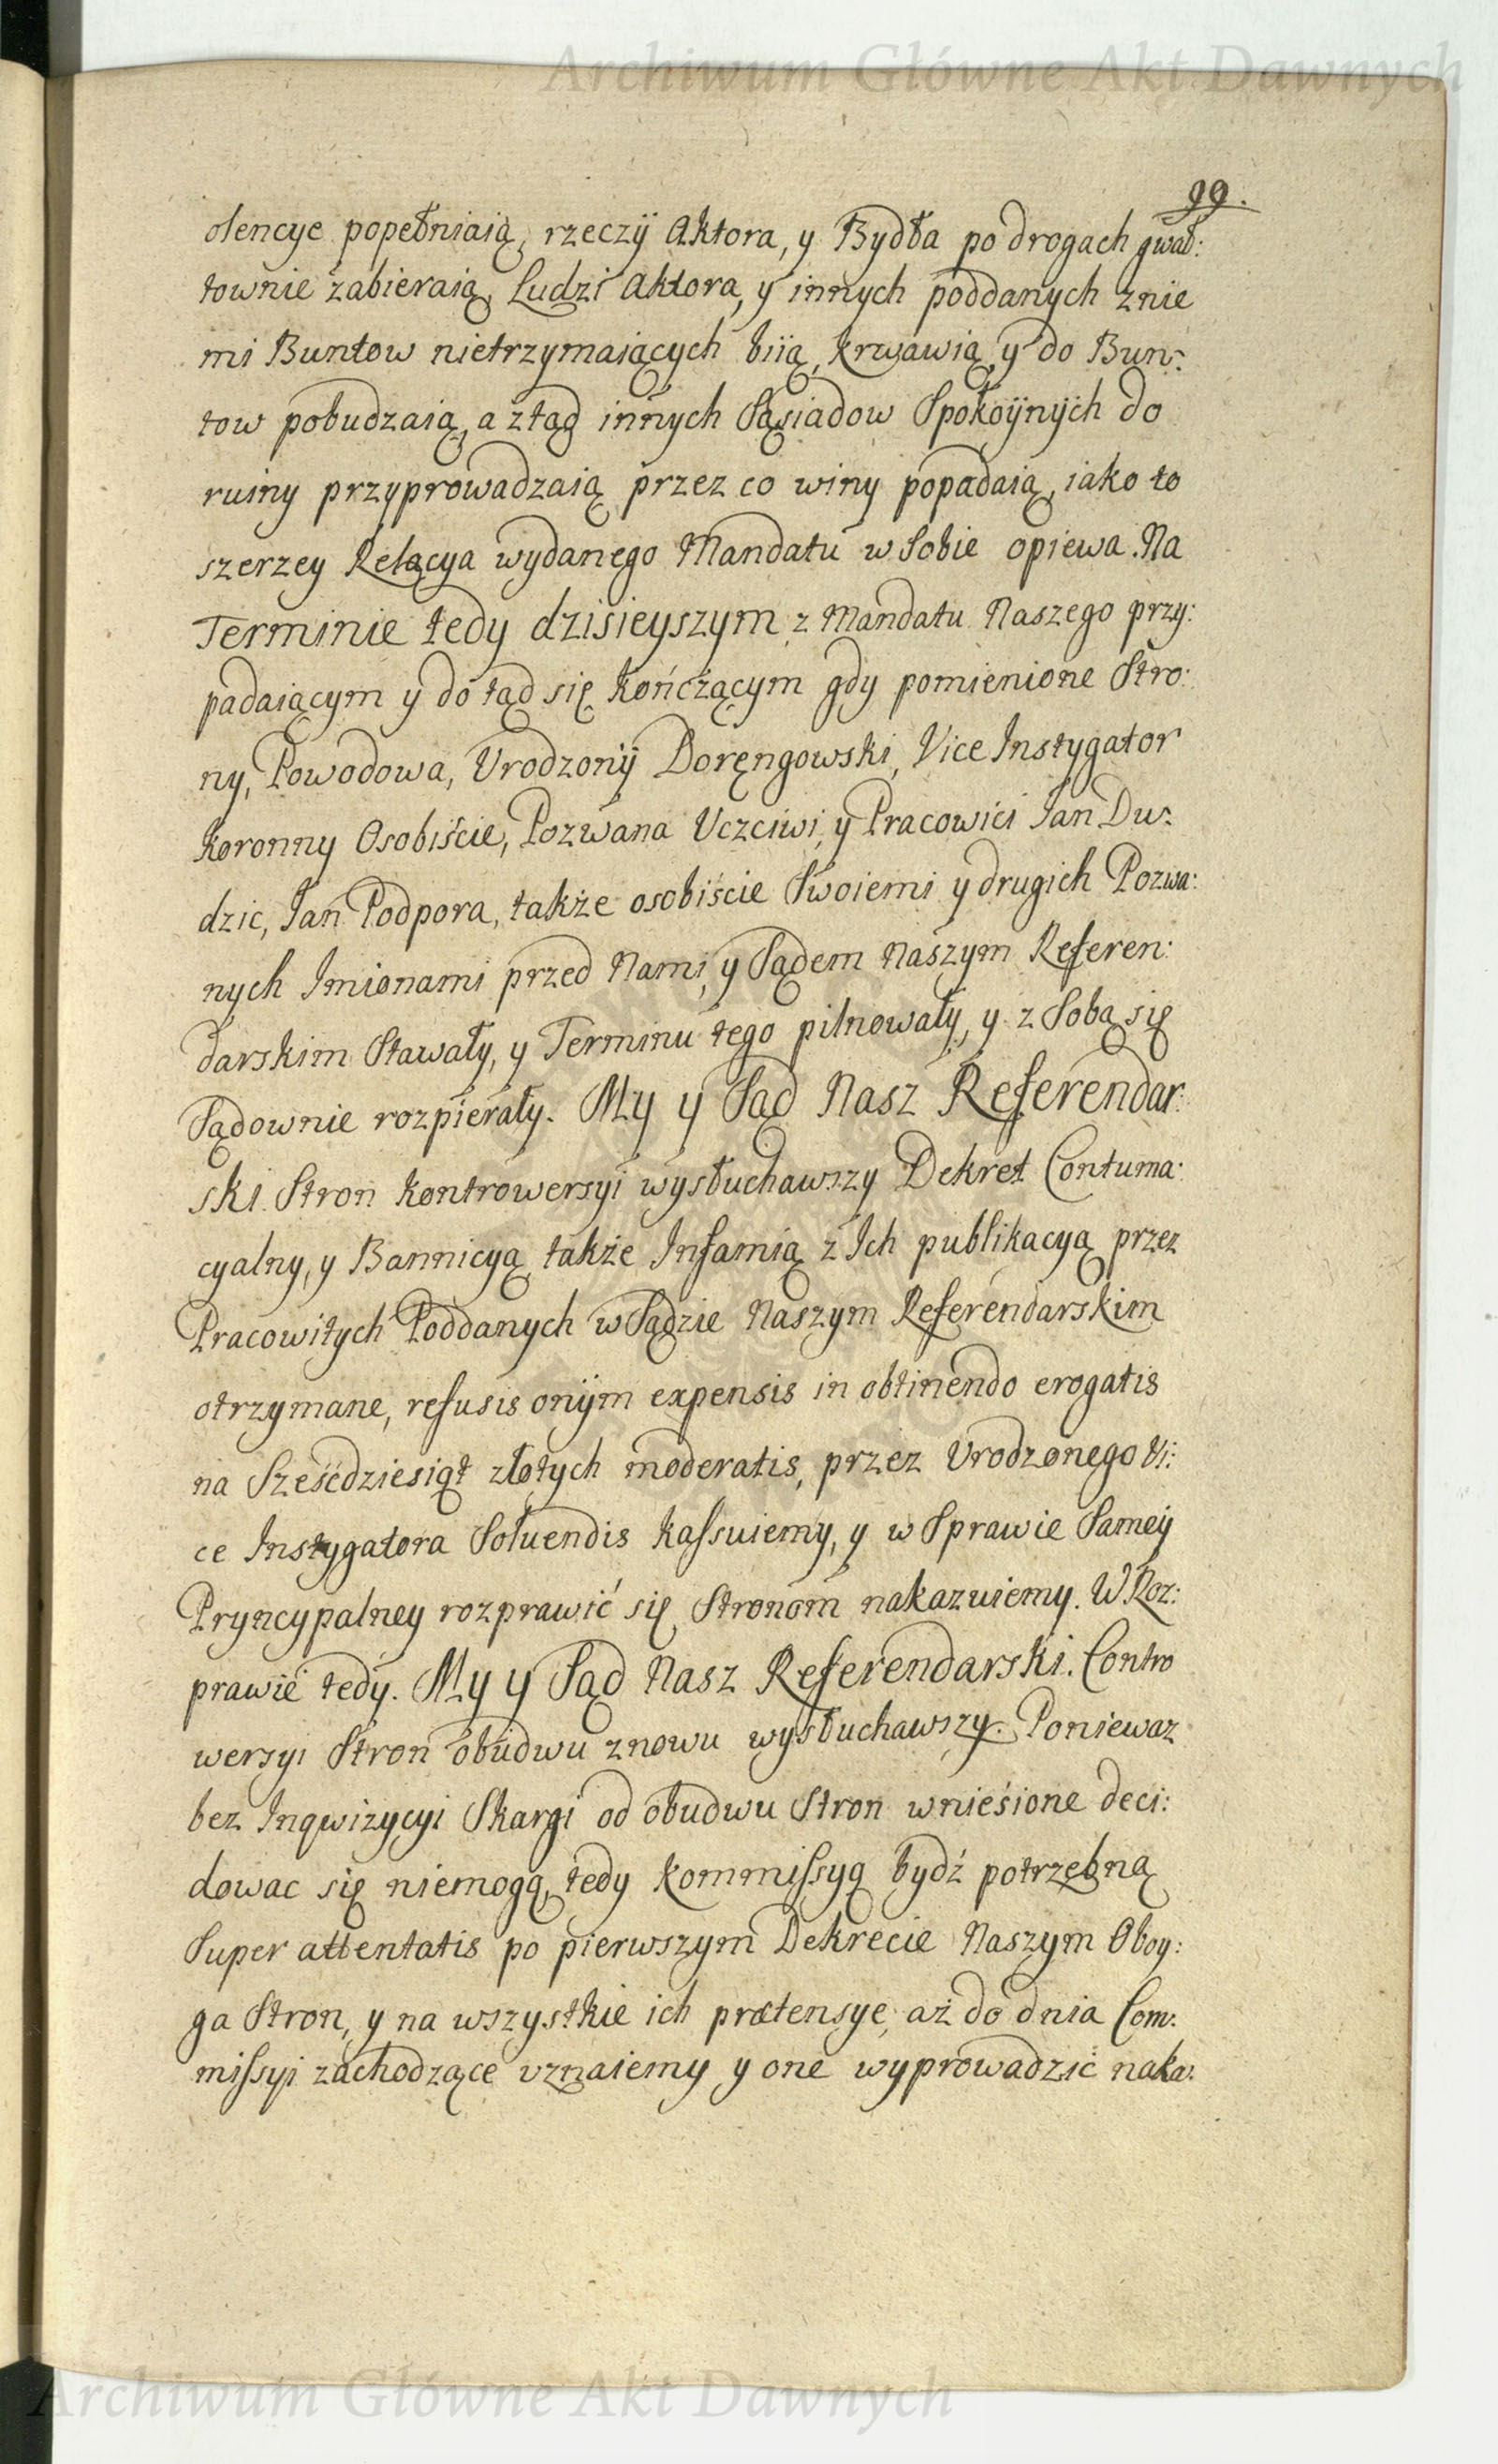 Archiwum Główne Akt Dawnych
99.
olencye popełniaią, rzeczÿ Aktora, y Bydła po drogach gwał:
townie zabieraią, Ludzi Aktora, y innych poddanych znie
mi Buntow nietrzymaiących biią, krwawią, y do Bun:
tow pobudzaią, a ztąd innych Sąsiadow Spokoÿnÿch do
ruiny przyprowadzaią przez co winy popadaią, iako to
szerzey Relacya wydanego Mandatu w Sobie opiewa. Na
Terminie tedy dzisieyszym z Mandatu Naszego przy:
padaiącym y do tąd się kończącym gdy pomienione Stro:
ny, Powodowa, Urodzonÿ Doręngowski, Vice Instygator
Koronny Osobiście, Pozwana Uczciwi, y Pracowici Jan Du:
dzic, Jan Podpora, także osobiście Swoiemi y drugich Pozwa:
nych Imionami przed Nami, y Sądem Naszym Referen:
darskim Stawały, y Terminu tego pilnowały, y z Sobą się
Sądownie rozpierały. My y Sąd Nasz Referendar:
ski Stron kontrowersyi wysłuchawszy Dekret Contuma:
cyalny, y Bannicyą, także Infamią z Ich publikacyą przez
Pracowitych Poddanych w Sądzie Naszym Referendarskim
otrzymane, refusis onÿm expensis in obtinendo erogatis
na Sześćdziesiąt złotych moderatis, przez Urodzonego Vi:
ce Instygatora Soluendis kassuiemy, y w Sprawie Sameÿ
Pryncypalney rozprawić się Stronom nakazuiemy. W Roz:
prawie tedy. My y Sąd Nasz Referendarski. Contro
wersyi Stron obudwu znowu wysłuchawszy. Poniewaz
bez Inqwizycyi Skargi od obudwu Stron wnieśione deci:
dowac się niemogą, tedy Kommissyą bydź potrzebną
Super attentatis po pierwszym Dekrecie Naszym Oboy:
ga Stron, y na wszystkie ich prætensye, aż do dnia Com:
missyi zachodzące vznaiemy y one wyprowadzić naka:
Archiwum Główne Akt Dawnych